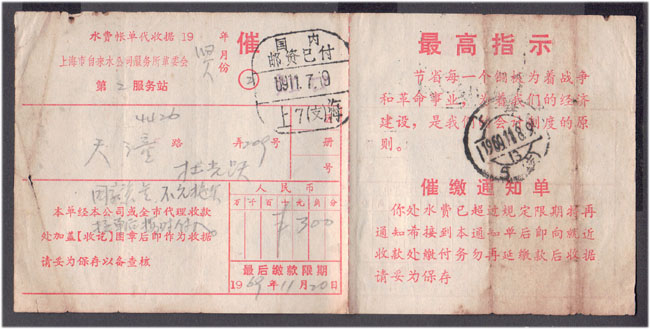 水费帐单代收据19 年
月
份
催
上海市自来水公司服务所革委会
第2服务站
国内
邮资已付
上7(支)海
4426
天潼路 弄209号 册
号
人民币
万千百十元角分
300
本单经本公司或全市代理收款
处加盖【收讫】图章后即作为收据
请妥为保存以备查核
最后缴款限期
1969年11月20日
最高指示
节省每一个铜板为着战争
和革命事业，为着我们的经济
建设，是我们会计制度的原
则。
1969.11.8.9
上海
催缴通知单
你处水费已超过规定限期特再
通知希接到本通知单后即向就近
收款处缴付务勿再延缴款后收据
请妥为保存